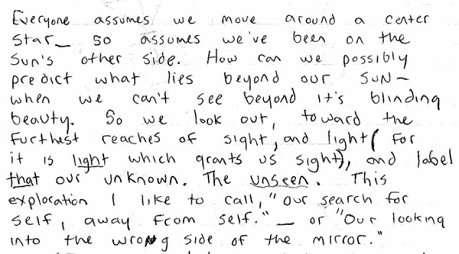 Everyone assumes we move around a center
star_ so assumes we've been on the
Sun's other side. How can we possibly
predict what lies beyond our SUN—
when we can't see beyond it's blinding
beauty. So we look out, toward the
furthest reaches of sight, and light (for
it is light which grants us sight), and label
that our unknown. The unseen. This
exploration I like to call, "our search for
self, away from self." — or "Our looking
into the wrong side of the mirror."